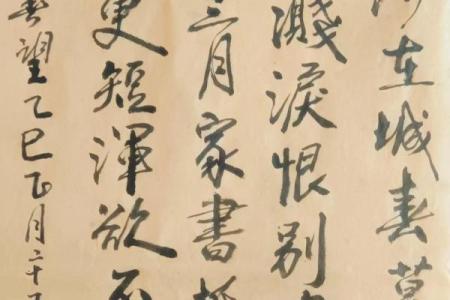 河在城春草
濺淚恨别
三月家書抵
更短渾欲不
春望乙巳正月二十